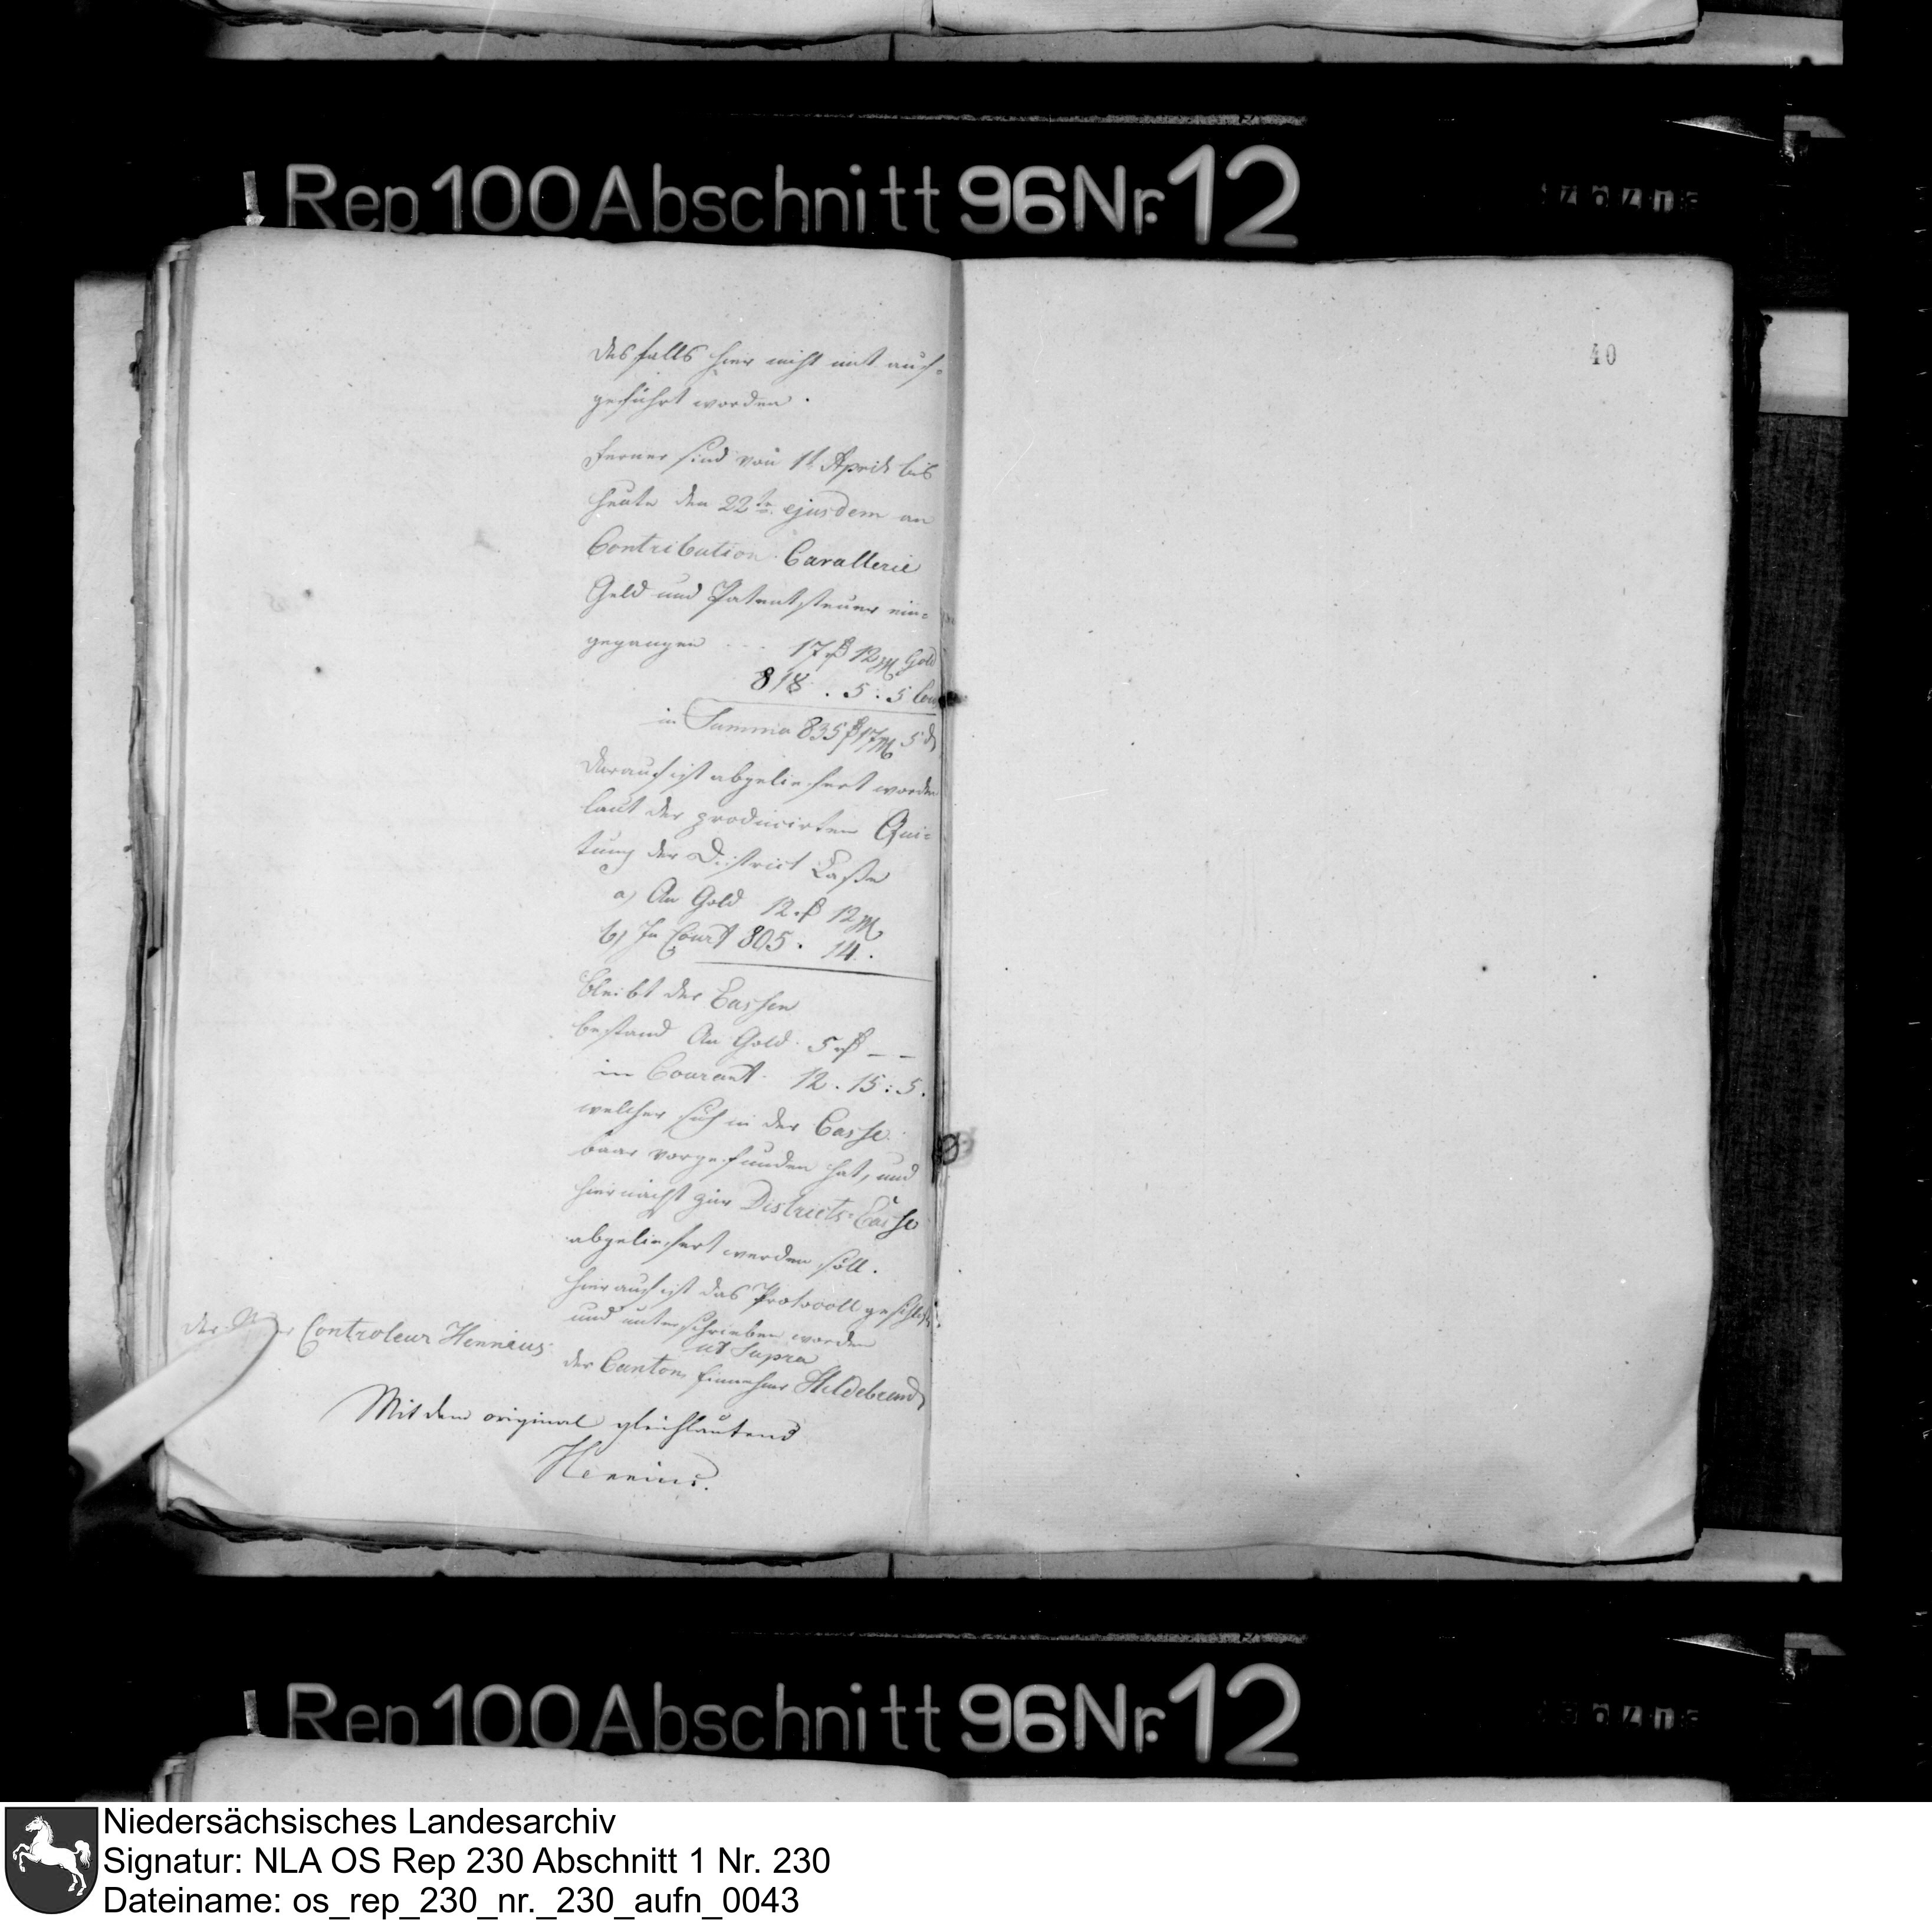 Rep 100 Abschnitt 96 Nr. 12
40
desfalls hier nicht mit auf-
geführt worden.
Ferner sind von 1t Aprils bis
heute den 22ten ejusdem an
Contribution Cavallerie
Geld und Patentsteuer ein-
gegangen - - - 17 rß 12 M Gold
818 . 5 : 5 Cour
in Summa 835 rß 17 M 5 d
Darauf ist abgeliefert worden
laut der producirten Qui-
tung der District Casse
a) An Gold 12 rß 12 M
b) In Court 805 . 14 .
bleibt der Cassen
bestand An Gold 5 rß – –
in Courant 12 . 15 : 5 .
welcher sich in der Casse
baar vorgefunden hat, und
hiernächst zur Districts-Casse
abgeliefert werden soll.
Hierauf ist das Protocoll geschloßen
und unterschrieben worden
ut Supra
der Controleur Hennius
der Canton Einnehmer Hildebrand
Mit dem original gleichlautend
Hennius.
Rep 100 Abschnitt 96 Nr. 12
Niedersächsisches Landesarchiv
Signatur: NLA OS Rep 230 Abschnitt 1 Nr. 230
Dateiname: os_rep_230_nr._230_aufn_0043